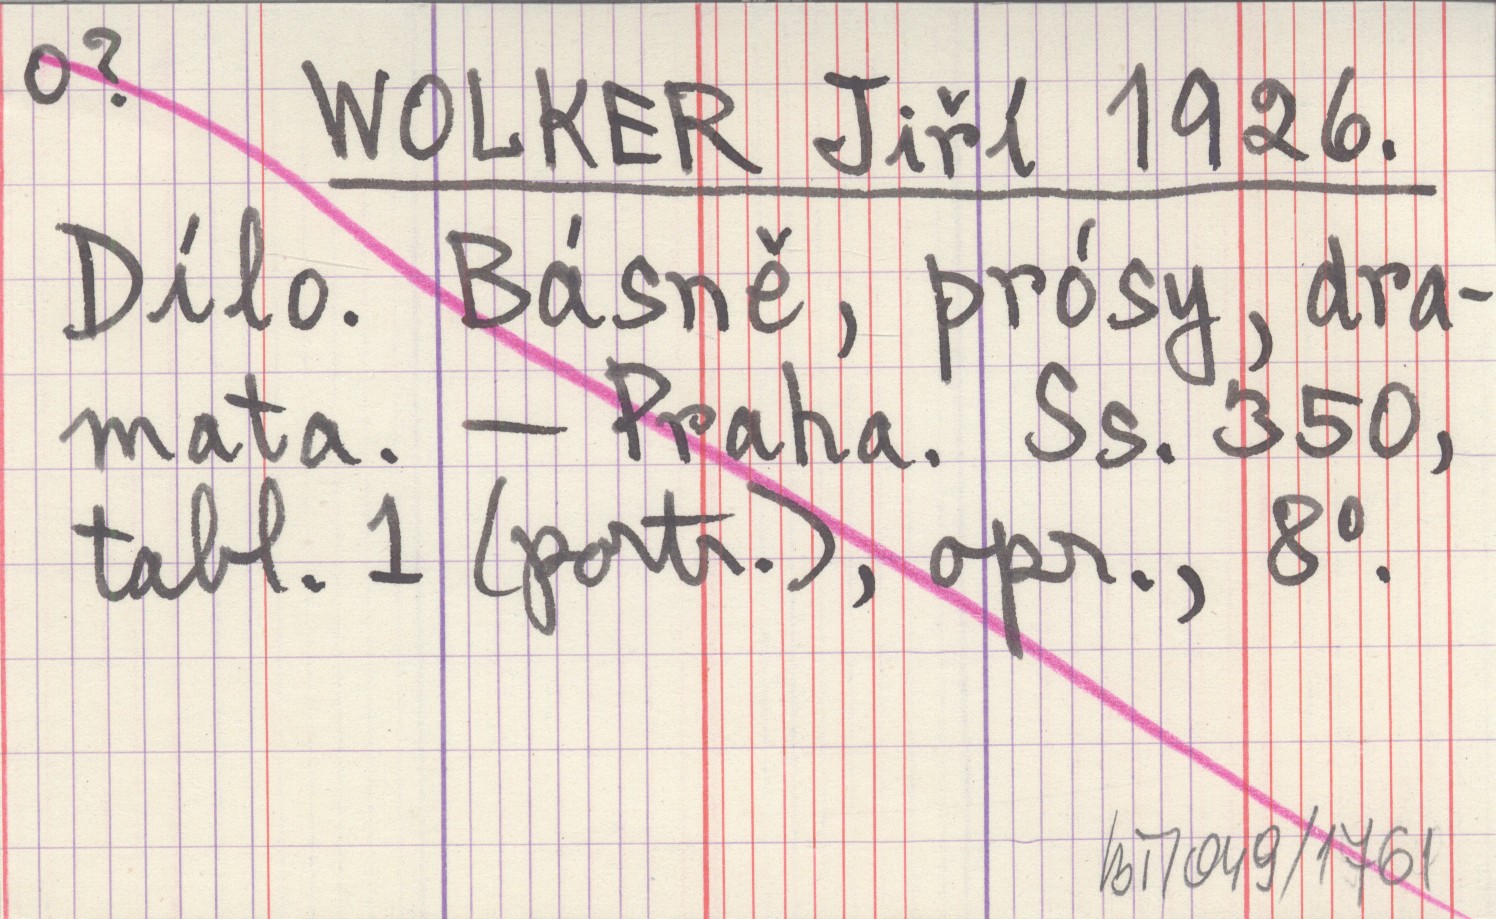 o?
WOLKER Jiří 1926.
Dílo. Básně, prósy, dra-
mata. — Praha. Ss. 350,
tabl. 1 (portr.), opr., 8º.
049/1761